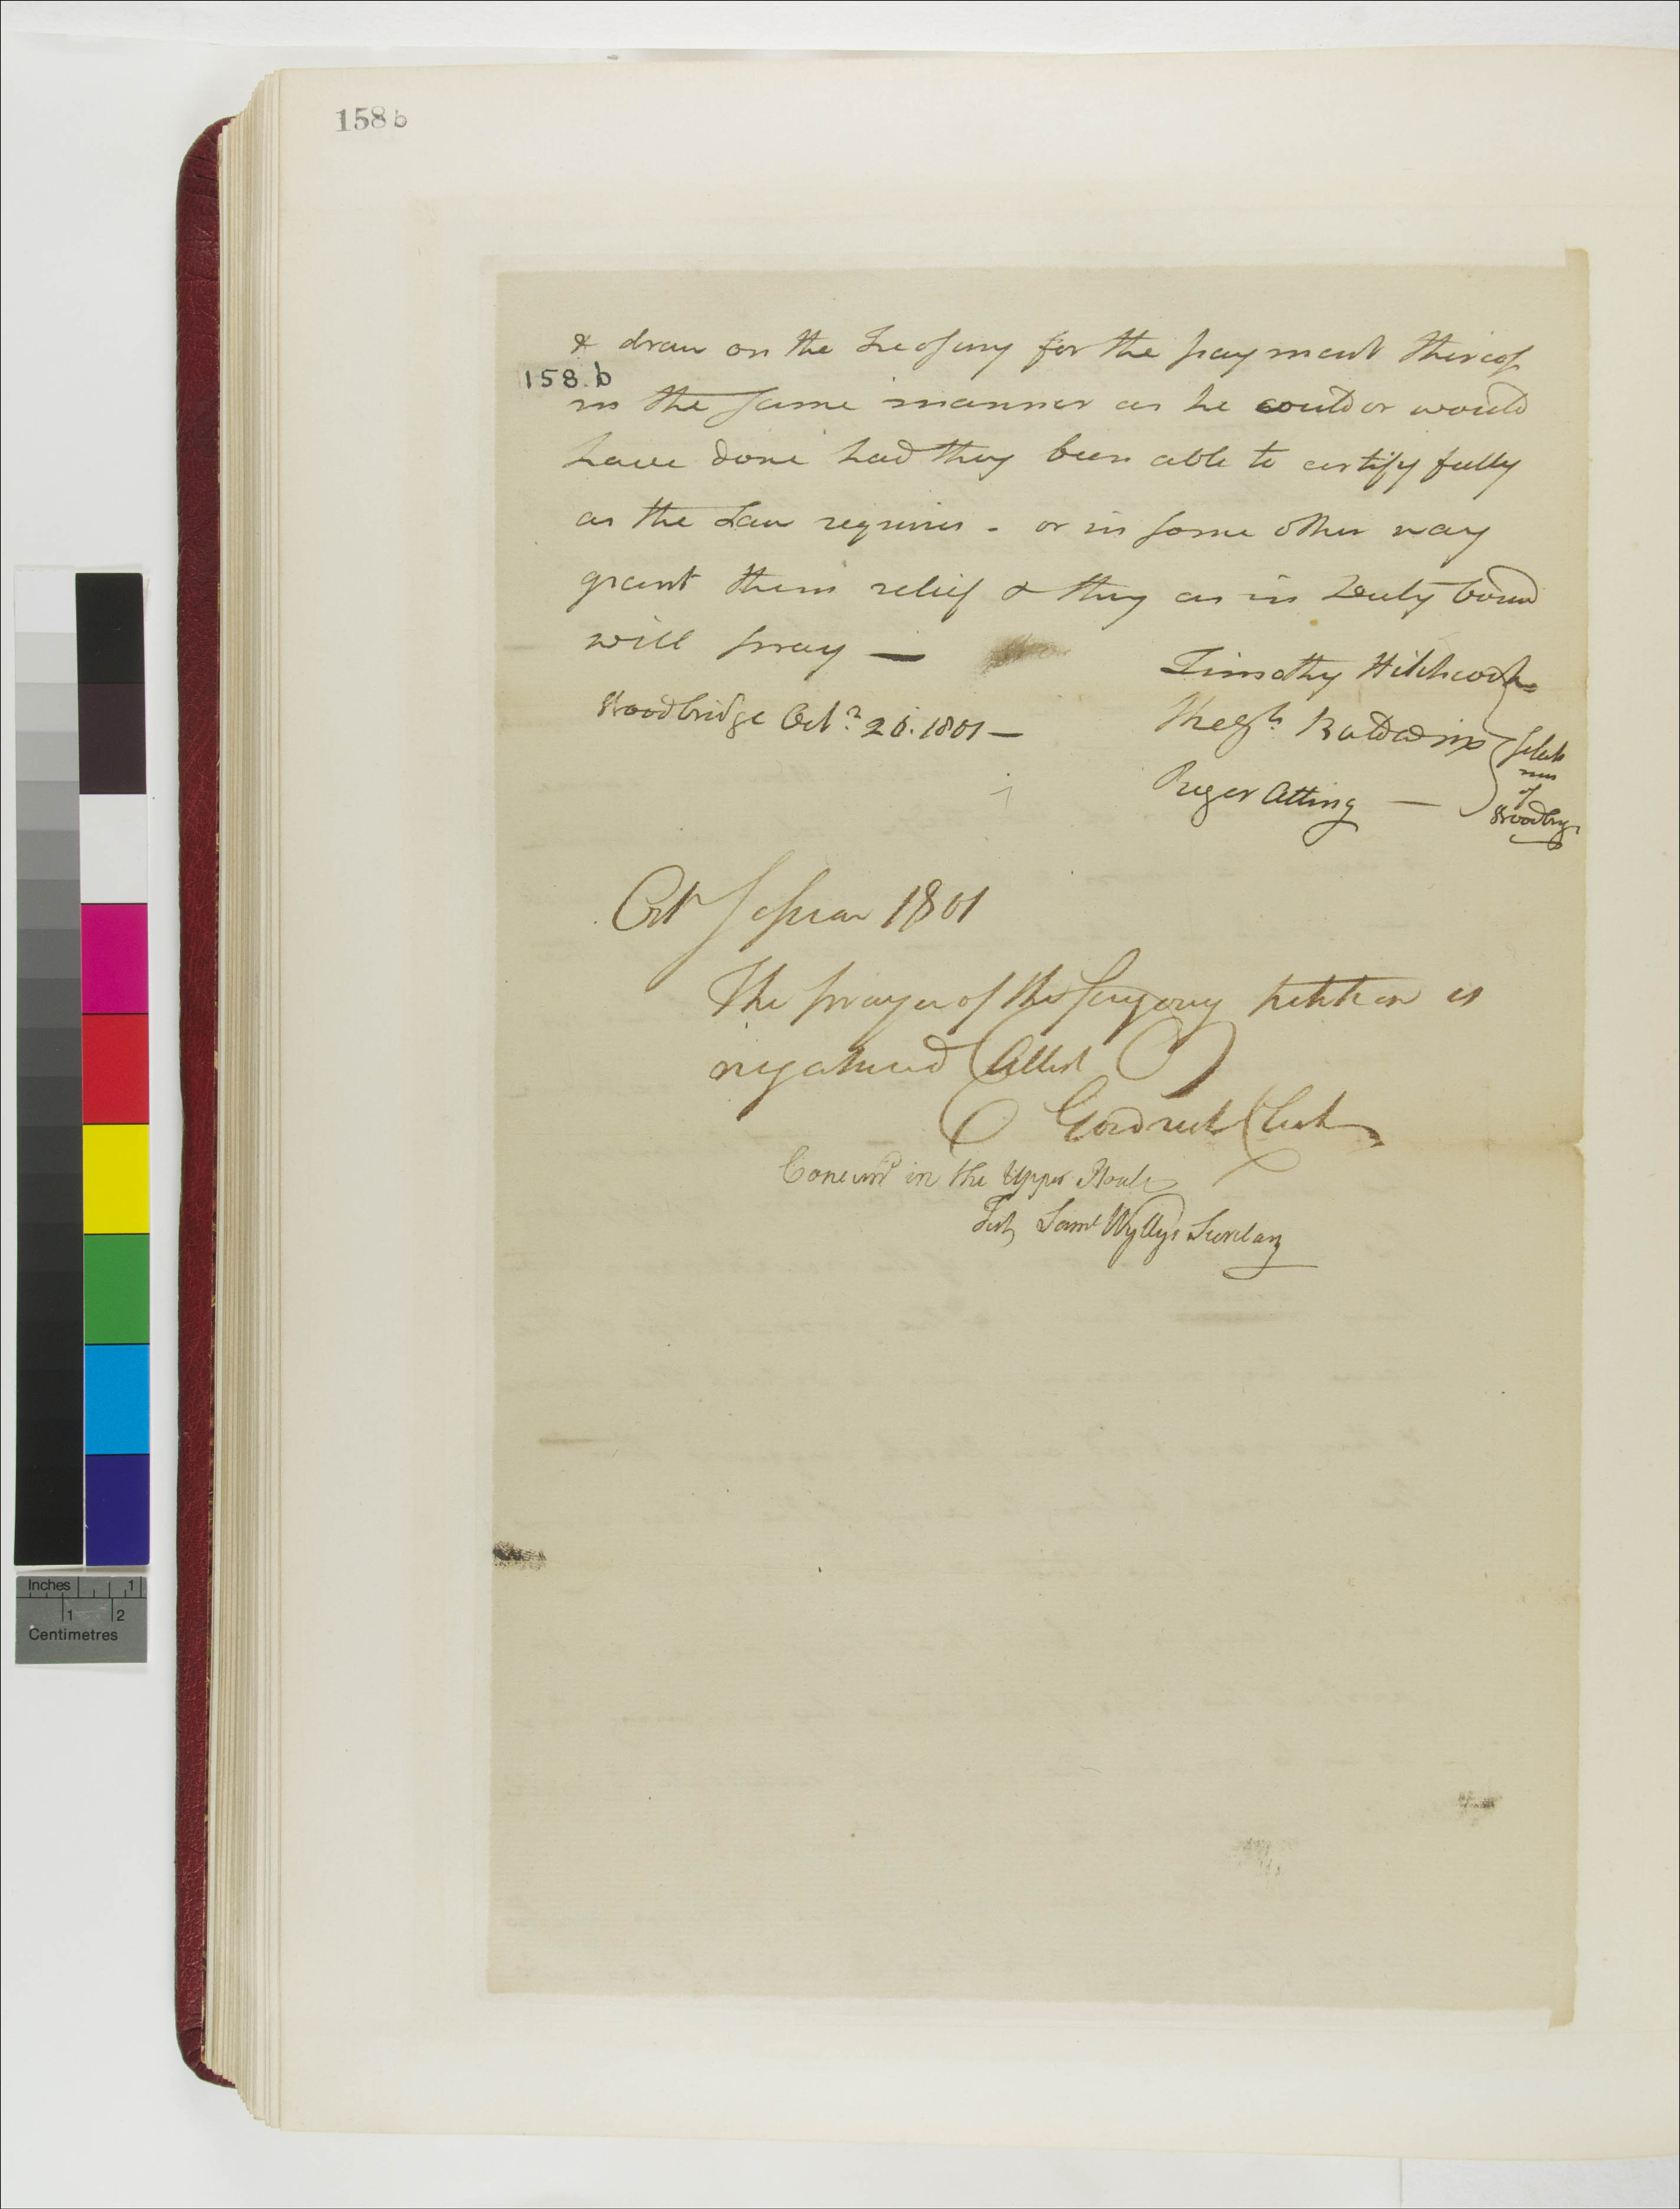 158 b
& draw on the Treasury for the payment thereof
158.b
in the same manner as he could or would
have done had they been able to certify fully
as the Law requires - or in some other way
grant them relief & they as in Duty bound
will pray —
Woodbridge Octr 26. 1801 —
Timothy Hitchcock
Baldwin
Roger Alling —
Select
men
of
Woodbrg
Octr Session 1801
The prayer of the foregoing petition is
negatived Attest
Goodrich Clerk
Concurrd in the Upper House
Test Saml Wyllys Secretary
Inches 1
1 2
Centimetres